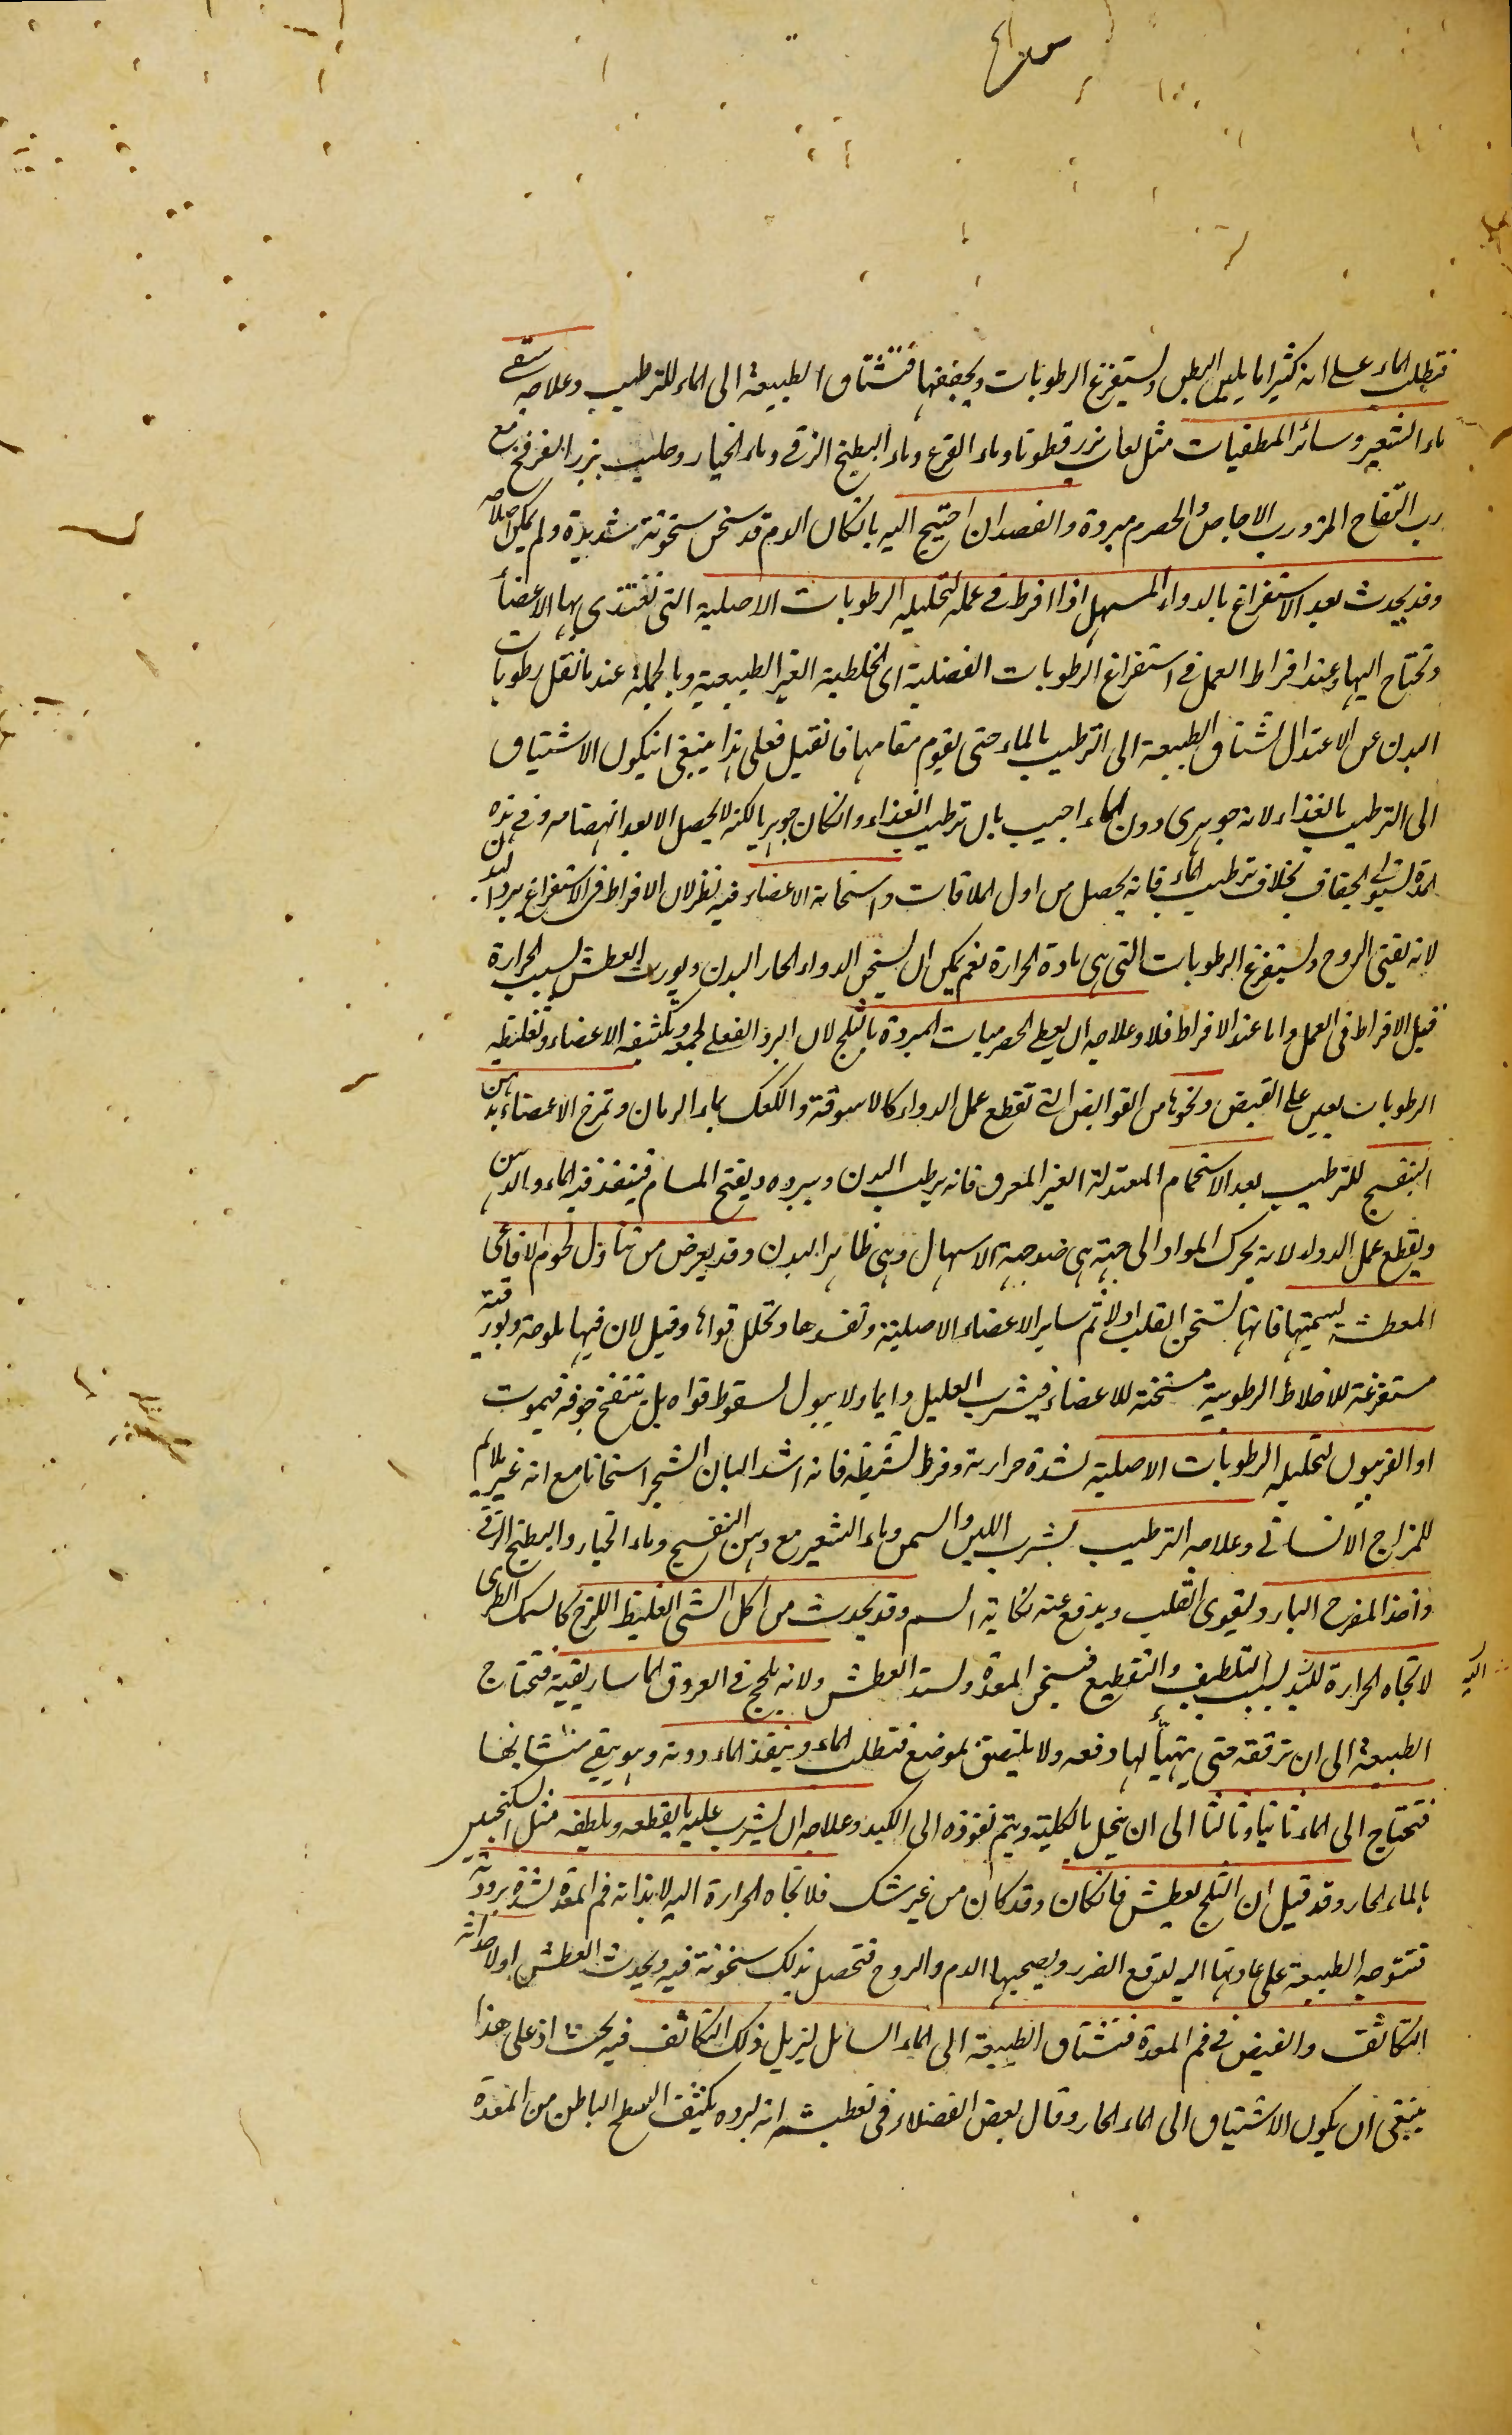 فتطلب الماء على انه كثيرا ما يلين البطن ويستفرغ الرطوبات ويجففها فتشتاق الطبيعة الى الماء للترطيب وعلاجه سقى
ماء الشعير وسائر المطفيات مثل لعاب بزر قطونا وماء القرع وماء البطيخ الزقى وماء الخيار وحليب بزر الفرفخ مع
رب التفاح المز ورب الاجاص والحصرم مبردة والفصد ان احتيج اليه بان كان الدم قد سخن سخونة شديدة ولم يمكن اصلاحه
وقد يحدث بعد الاستفراغ بالدواء المسهل اذا افرط فى عمله لتحليله الرطوبات الاصلية التى تغتذى بها الاعضاء
وتحتاج اليها وعند افراط العمل فى استفراغ الرطوبات الفضلية اى الخلطية الغير الطبيعية وبالجملة عند ما تقل رطوبات
البدن عن الاعتدال تشتاق الطبيعة الى الترطيب بالماء حتى يقوم مقامها فان قيل فعلى هذا ينبغى ان يكون الاشتياق
الى الترطيب بالغذاء لانه جوهرى دون الماء اجيب بان ترطيب الغذاء وان كان جوهريا لكنه لا يحصل الا بعد انهضامه وفى هذه
المدة يستولى الجفاف بخلاف ترطيب الماء فانه يحصل من اول الملاقات واسخانه الاعضاء وفيه نظر لان الافراط فى الاستفراغ يبرد البدن
لانه يفنى الروح ويستفرغ الرطوبات التى هى مادة الحرارة نعم يمكن ان يسخن الدواء الحار البدن ويورث العطش بسبب الحرارة
قبل الافراط فى العمل واما عند الافراط فلا وعلاجه ان يعطى الحصرميات المبردة بالثلج لان البرد الفعلى لجمعه وتكثيفه الاعضاء وتغليظه
الرطوبات يعين على القبض ونحوها من القوابض التى تقطع عمل الدواء كالاسوقة والكعك بماء الرمان وتمرخ الاعضاء بدهن
البنفسج للترطيب بعد الاستحمام المعتدلة الغير المعرق فانه يرطب البدن ويبرده ويفتح المسام فينفذ فيه الماء والدهن
ويقطع عمل الدواء لانه يحرك المواد الى جهة هى ضد جهة الاسهال وهى ظاهر البدن وقد يعرض من تناول لحوم الافاعى
المعطشة لسميتها فانها تسخن القلب اولا ثم ساير الاعضاء الاصلية وتفسدها وتحلل قواها وقيل لان فيها ملوحة وبورقية
مستفرغة للاخلاط الرطوبية مسخنة للاعضاء فيشرب العليل دايما ولا يبول لسقوط قواه بل ينتفخ جوفه فيموت
او الفربيون لتحليله الرطوبات الاصلية لشدة حرارته وفرط تنشيفه فانه اشد البان الشجر اسخانا مع انه غير ملايم
للمزاج الانسانى وعلاجه الترطيب بشرب اللبن والسمن وماء الشعير مع دهن البنفسج وماء الخيار والبطيخ الزقى
واخذ المفرح البارد ليقوى القلب ويدفع عنه نكاية السم وقد يحدث من اكل الشى الغليظ اللزج كالسمك الطرى
لاتجاه الحرارة للبد بسبب التلطيف والتقطيع فيسخن المعدة ويشتد العطش ولانه يلحج فى العروق الماساريقية فتحتاج
اليه
الطبيعة الى ان ترققه حتى يتهيأ لها دفعه ولا يلتصق بموضع فتطلب الماء وينفذ الماء دونه وهو يبقى متشابها
فتحتاج الى الماء ثانيا وثالثا الى ان ينحل بالكلية ويتم نفوذه الى الكبد وعلاجه ان يشرب عليه ما يقطعه ويلطفه مثل السكنجبين
بالماء الحار وقد قيل ان الثلج يعطش فان كان وقد كان من غير شك فلاتجاه الحرارة اليه لايذائه فم المعدة لشدة برودته
فتتوجه الطبيعة على عادتها اليه لدفع الضرر ويصحبها الدم والروح فتحصل بذلك سخونة فيه ويحدث العطش او لاحداثه
التكاثف والقبض فى فم المعدة فتشتاق الطبيعة الى الماء السائل ليزيل ذلك التكاثف فيه بحث اذ على هذا
ينبغى ان يكون الاشتياق الى الماء الحار وقال بعض الفضلاء فى تعطيشه انه لبرده يكثف السطح الباطن من المعدة